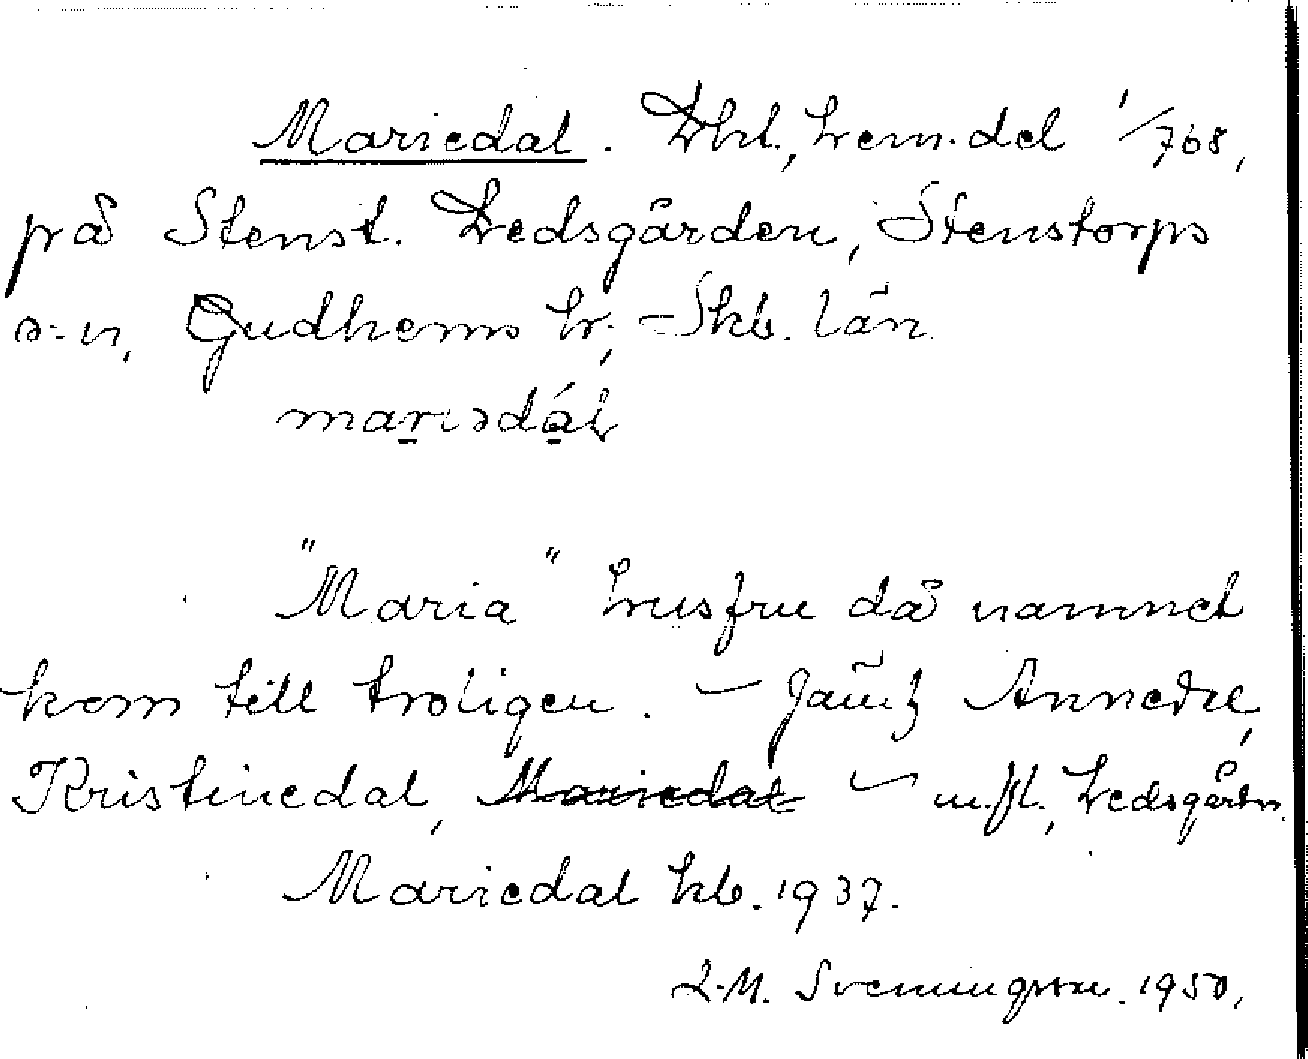 Mariedal. Lht., hem.del 1/768,
på Stenst. Hedsgården, Stenstorps
s-n, Gudhems hr, Skb. län.
mariədál
"Maria" husfru då namnet
kom till troligen. – Jämf Annedal,
Kristinedal, Mariedal – m.fl., Hedsgårdn.
Mariedal kb. 1937.
L.M. Svenningsson. 1950.